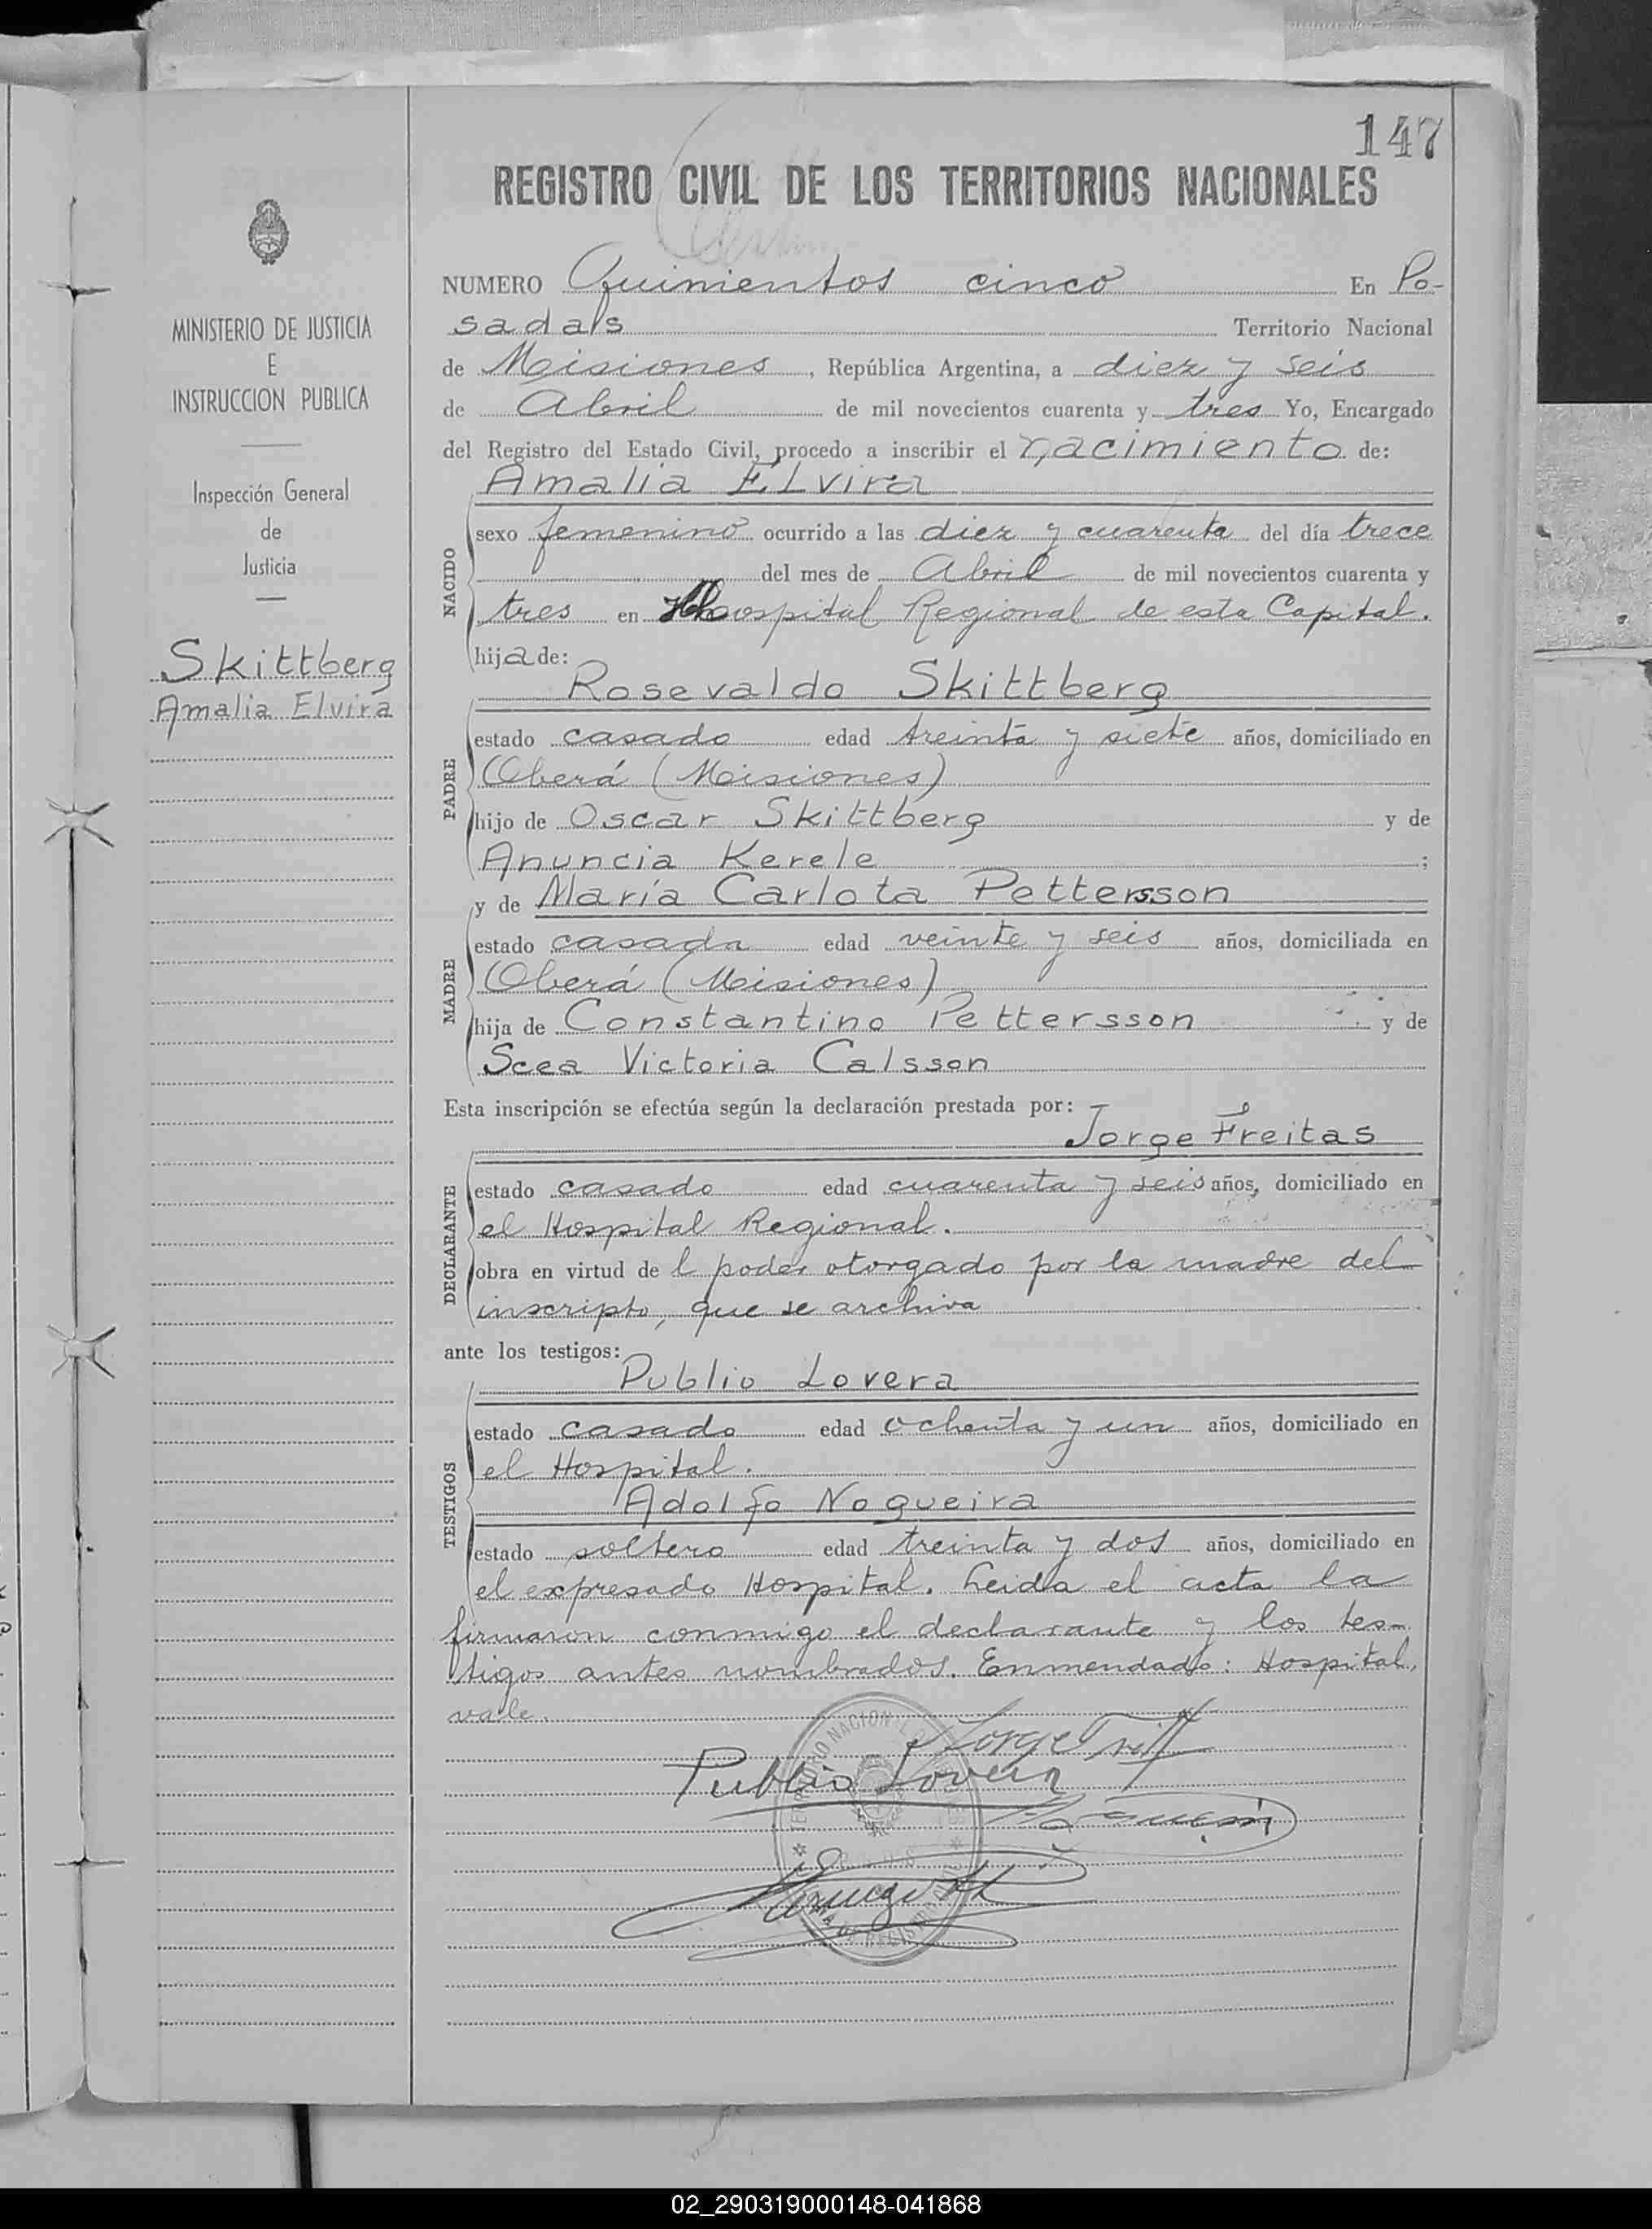 147
REGISTRO CIVIL DE LOS TERRITORIOS NACIONALES
MINISTERIO DE JUSTICIA
E
INSTRUCCION PUBLICA
Inspección General
de
Justicia
Skittberg
Amalia Elvira
NUMERO Quinientos cinco En Po-
sadas Territorio Nacional
de Misiones, República Argentina, a diez y seis
de Abril de mil novecientos cuarenta y tres Yo, Encargado
del Registro del Estado Civil, procedo a inscribir el nacimiento de:
Amalia Elvira
NACIDO
sexo femenino ocurrido a las diez y cuarenta del día trece
del mes de Abril de mil novecientos cuarenta y
tres en Hospital Regional de esta Capital.
hija de:
Rosevaldo Skittberg
PADRE
estado casado edad treinta y siete años, domiciliado en
Oberá (Misiones)
hijo de Oscar Skittberg y de
Anuncia Kerele ;
y de María Carlota Pettersson
MADRE
estado casada edad veinte y seis años, domiciliada en
Oberá (Misiones)
hija de Constantino Pettersson y de
Scea Victoria Calsson
Esta inscripción se efectúa según la declaración prestada por:
Jorge Freitas
DECLARANTE
estado casado edad cuarenta y seis años, domiciliado en
el Hospital Regional.
obra en virtud de l poder otorgado por la madre del
inscripto, que se archiva
ante los testigos:
Publio Lovera
TESTIGOS
estado casado edad ochenta y un años, domiciliado en
el Hospital.
Adolfo Nogueira
estado soltero edad treinta y dos años, domiciliado en
el expresado Hospital. Leida el acta la
firmaron conmigo el declarante y los tes-
tigos antes nombrados. Enmendado: Hospital,
vale.
Publio Lovera
02_290319000148-041868